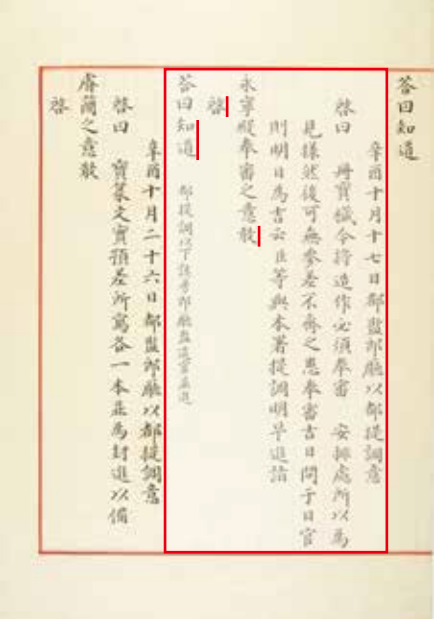 答曰知道
辛酉十月十七日都監郎廳以都提調意
啓曰 冊寶欌今將造作必須奉審 安排處所以爲
見樣然後可無參差不齊之患奉審吉日問于日官
則明日爲吉云臣等與本署提調明早進詣
永寧殿奉審之意敢
啓
答曰知道 都提調以下諸房郎廳監造官並進
辛酉十月二十六日都監郎廳以都提調意
啓曰 寶篆文實預差所寫各一本並爲封進以備
睿覽之意敢
啓